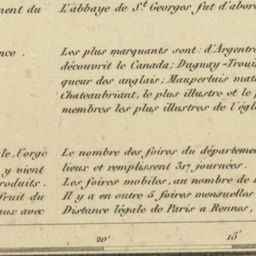 ment du L'abbaye de St. Georges fut d'abor
nce. Les plus marquants sont: d'Argentré
découvrit le Canada; Duguay-Trouin
queur des anglais; Maupertuis mat
Chateaubriant, le plus illustre et le p
membres les plus illustres de l'égl
le, l'orge Le nombre des foires du départeme
y vient lieux et remplissent 317 journées.
roduits. Les foires mobiles, au nombre de
fruit du Il y a en outre 5 foires mensuelles
aux avec Distance légale de Paris à Rennes,
20' 15'